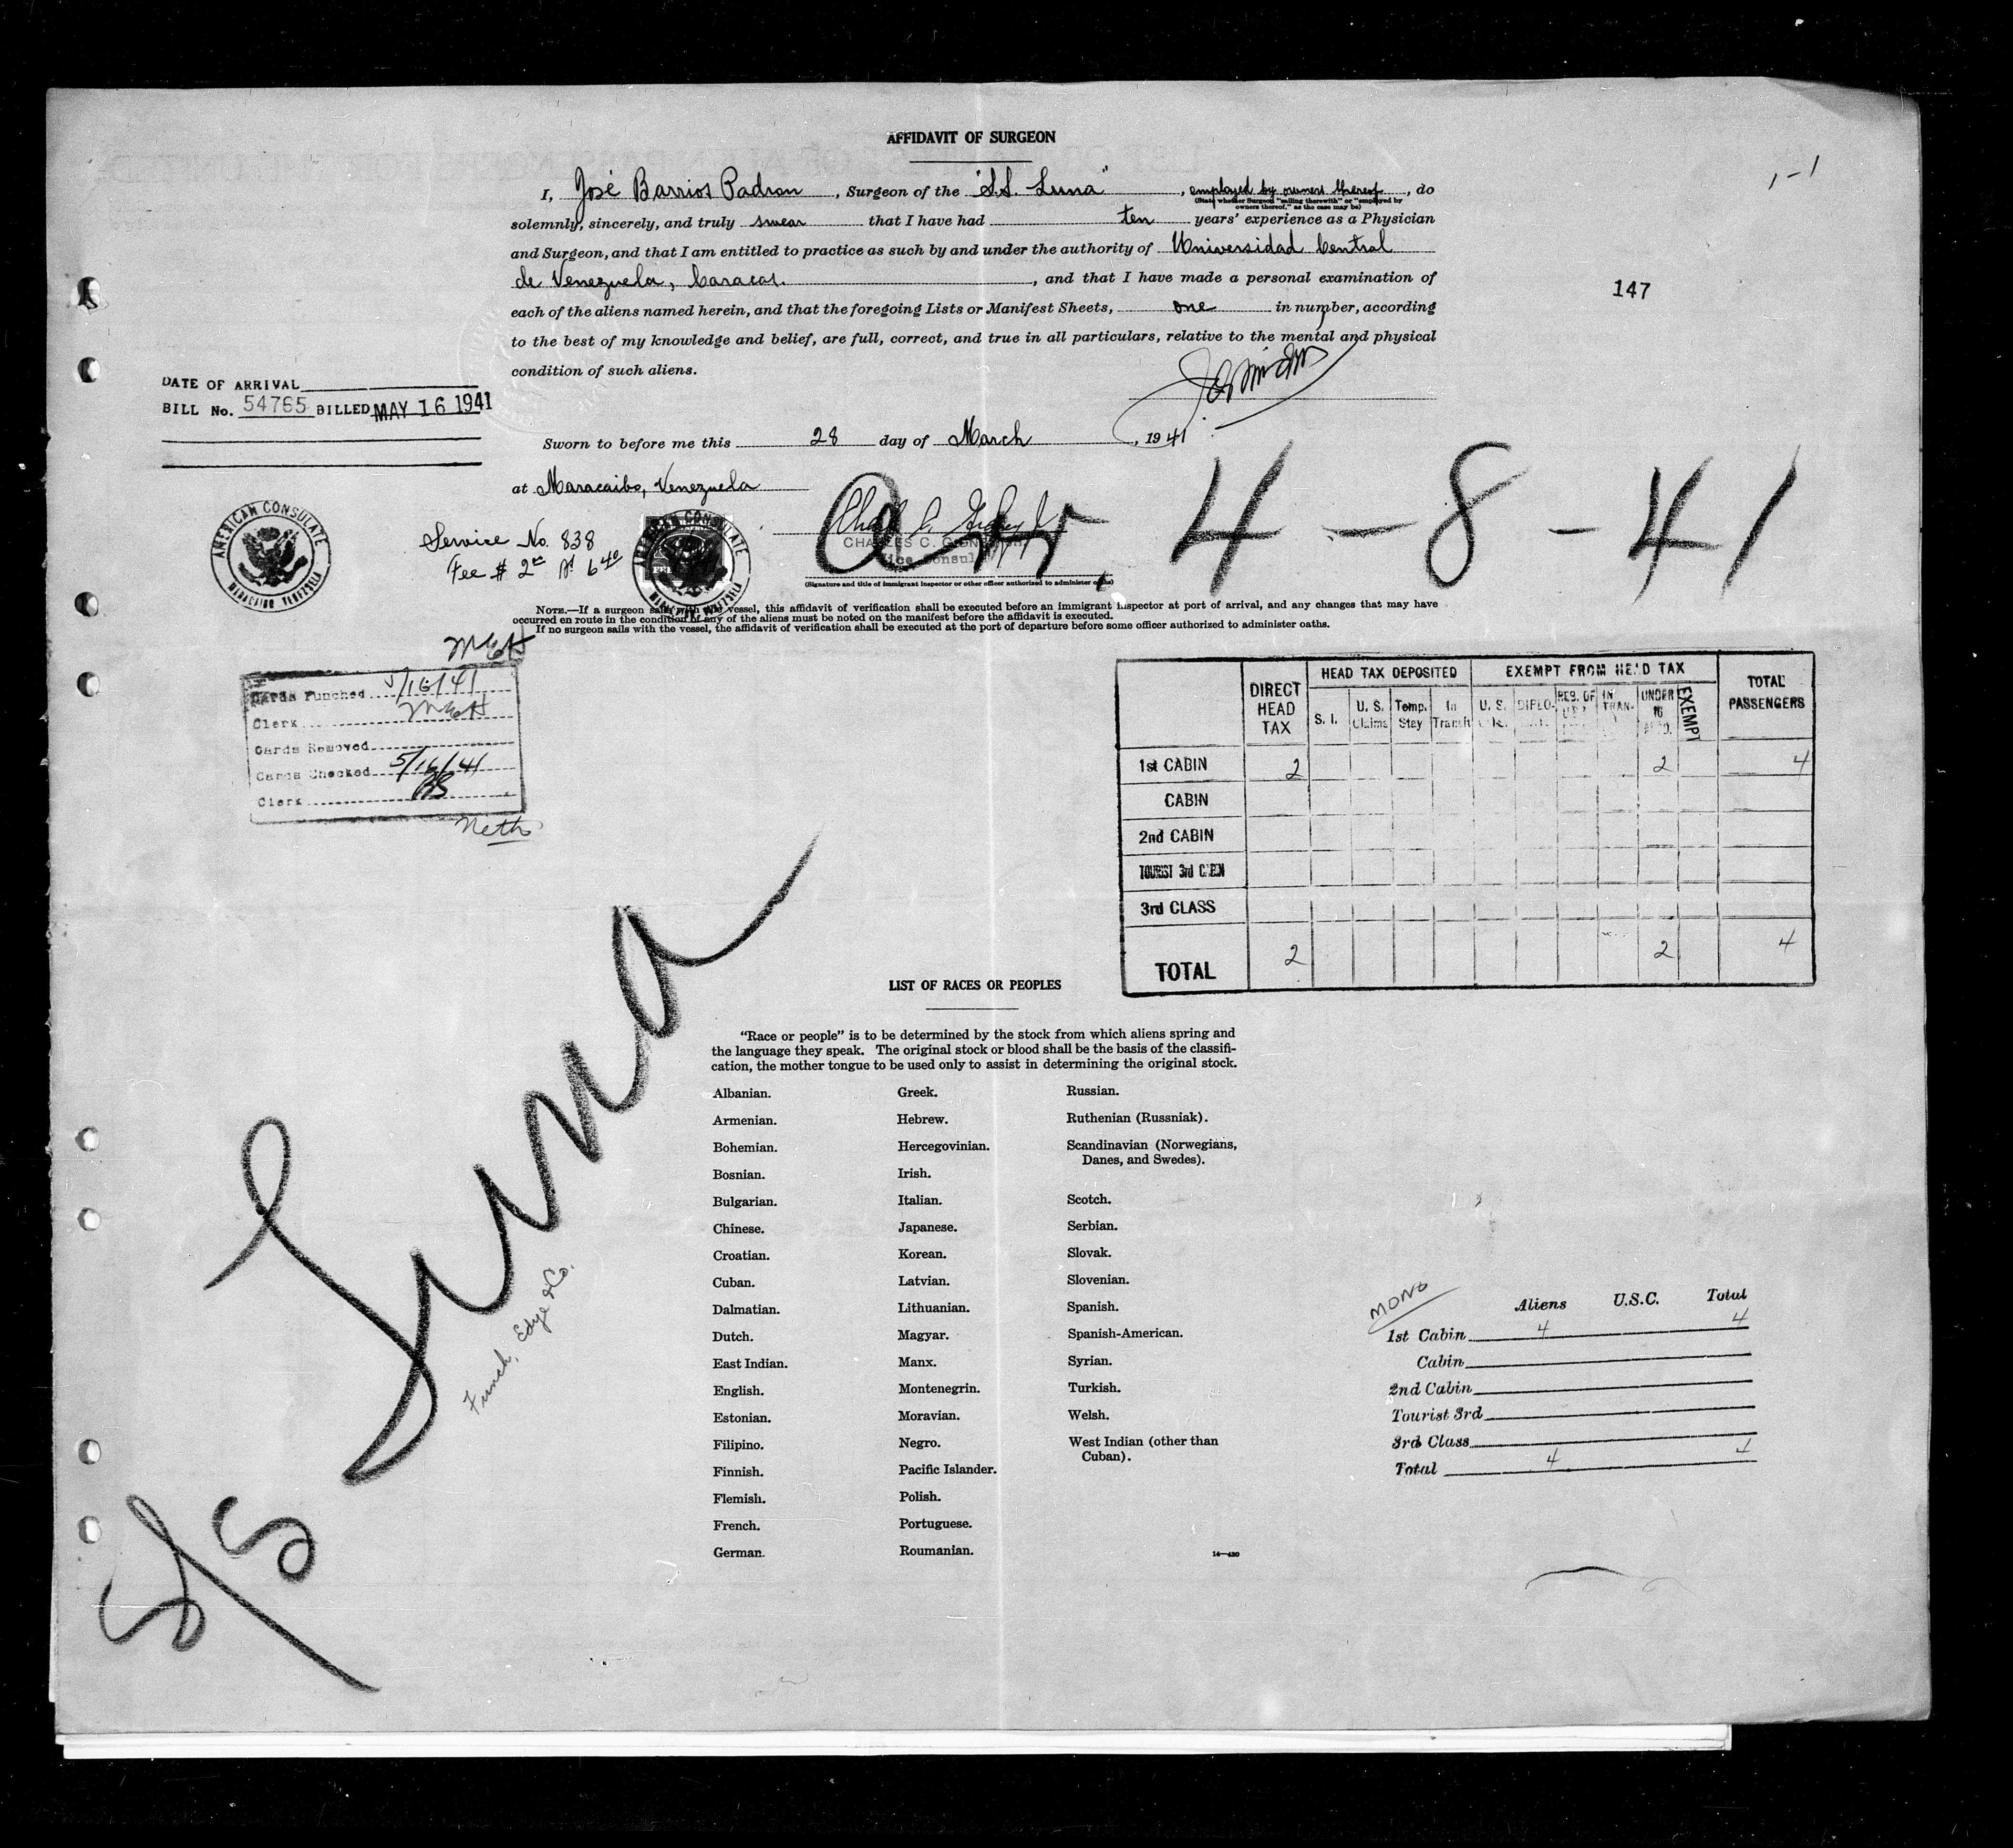 AFFIDAVIT OF SURGEON
1-1
I, José Barrios Padron, Surgeon of the "S.S. Luna", employed by owners thereof, do
(State whether Surgeon "sailing therewith" or "employed by
owners thereof," as the case may be)
solemnly, sincerely, and truly swear that I have had ten years' experience as a Physician
and Surgeon, and that I am entitled to practice as such by and under the authority of Universidad Central
de Venezuela, Caracas., and that I have made a personal examination of
147
each of the aliens named herein, and that the foregoing Lists or Manifest Sheets, one in number, according
to the best of my knowledge and belief, are full, correct, and true in all particulars, relative to the mental and physical
condition of such aliens.
DATE OF ARRIVAL
BILL No. 54765 BILLED MAY 16 1941
Sworn to before me this 28 day of March, 1941
at Maracaibo, Venezuela
Arr. 4-8-41
AMERICAN CONSULATE
MARACAIBO VENEZUELA
Service No. 838
Fee $ 2
AMERICAN CONSULATE
MARACAIBO VENEZUELA
CHARLES C.
Vice Consul
(Signature and title of immigrant inspector or other officer authorized to administer oaths)
NOTE.—If a surgeon sails with the vessel, this affidavit of verification shall be executed before an immigrant inspector at port of arrival, and any changes that may have
occurred en route in the condition of any of the aliens must be noted on the manifest before the affidavit is executed.
If no surgeon sails with the vessel, the affidavit of verification shall be executed at the port of departure before some officer authorized to administer oaths.
MEH
Cards Punched 5/16/41
Clerk MEH
Cards Removed
Cards Checked 5/16/41
Clerk
Neth
DIRECT HEAD TAX
HEAD TAX DEPOSITED
EXEMPT FROM HEAD TAX
TOTAL PASSENGERS
S. I. U. S. Claims Temp. Stay In Transit U. S. DIPLO. RES. OF IN TRAN- UNDER 16 EXEMPT
1st CABIN 2 2 4
CABIN
2nd CABIN
TOURIST 3rd CABIN
3rd CLASS
TOTAL 2 2 4
S/S Luna
Funch, Edye & Co.
LIST OF RACES OR PEOPLES
"Race or people" is to be determined by the stock from which aliens spring and
the language they speak. The original stock or blood shall be the basis of the classifi-
cation, the mother tongue to be used only to assist in determining the original stock.
Albanian.
Armenian.
Bohemian.
Bosnian.
Bulgarian.
Chinese.
Croatian.
Cuban.
Dalmatian.
Dutch.
East Indian.
English.
Estonian.
Filipino.
Finnish.
Flemish.
French.
German.
Greek.
Hebrew.
Hercegovinian.
Irish.
Italian.
Japanese.
Korean.
Latvian.
Lithuanian.
Magyar.
Manx.
Montenegrin.
Moravian.
Negro.
Pacific Islander.
Polish.
Portuguese.
Roumanian.
Russian.
Ruthenian (Russniak).
Scandinavian (Norwegians,
Danes, and Swedes).
Scotch.
Serbian.
Slovak.
Slovenian.
Spanish.
Spanish-American.
Syrian.
Turkish.
Welsh.
West Indian (other than
Cuban).
14—430
MONO
Aliens U.S.C. Total
1st Cabin 4 4
Cabin
2nd Cabin
Tourist 3rd
3rd Class
Total 4 4